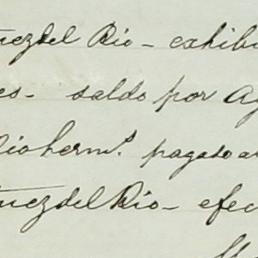 uezdel Rio - exhibi
es - saldo por Ag
lio herm.s pagado a
tuezdel Rio - efec